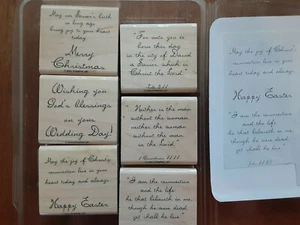 May our Savior's birth
so long ago
bring joy to your heart
today.
Merry
Christmas
"For unto you
is born this day
in the city of David
a Savior, which is
Christ the Lord."
Luke 2:11
Wishing you
God's blessings
on your
Wedding Day!
"Neither is the man
without the woman,
neither the woman
without the man,
1 Corinthians 11:11
May the joy of Christ's
resurrection live in your
heart today and always.
Happy Easter
"I am the resurrection
and the life:
he that believeth in me,
though he were dead,
yet shall he live."
May the joy of Christ's
resurrection live in your
heart today and always.
Happy Easter
"I am the resurrection,
and the life:
he that believeth in me,
though he were dead,
yet shall he live."